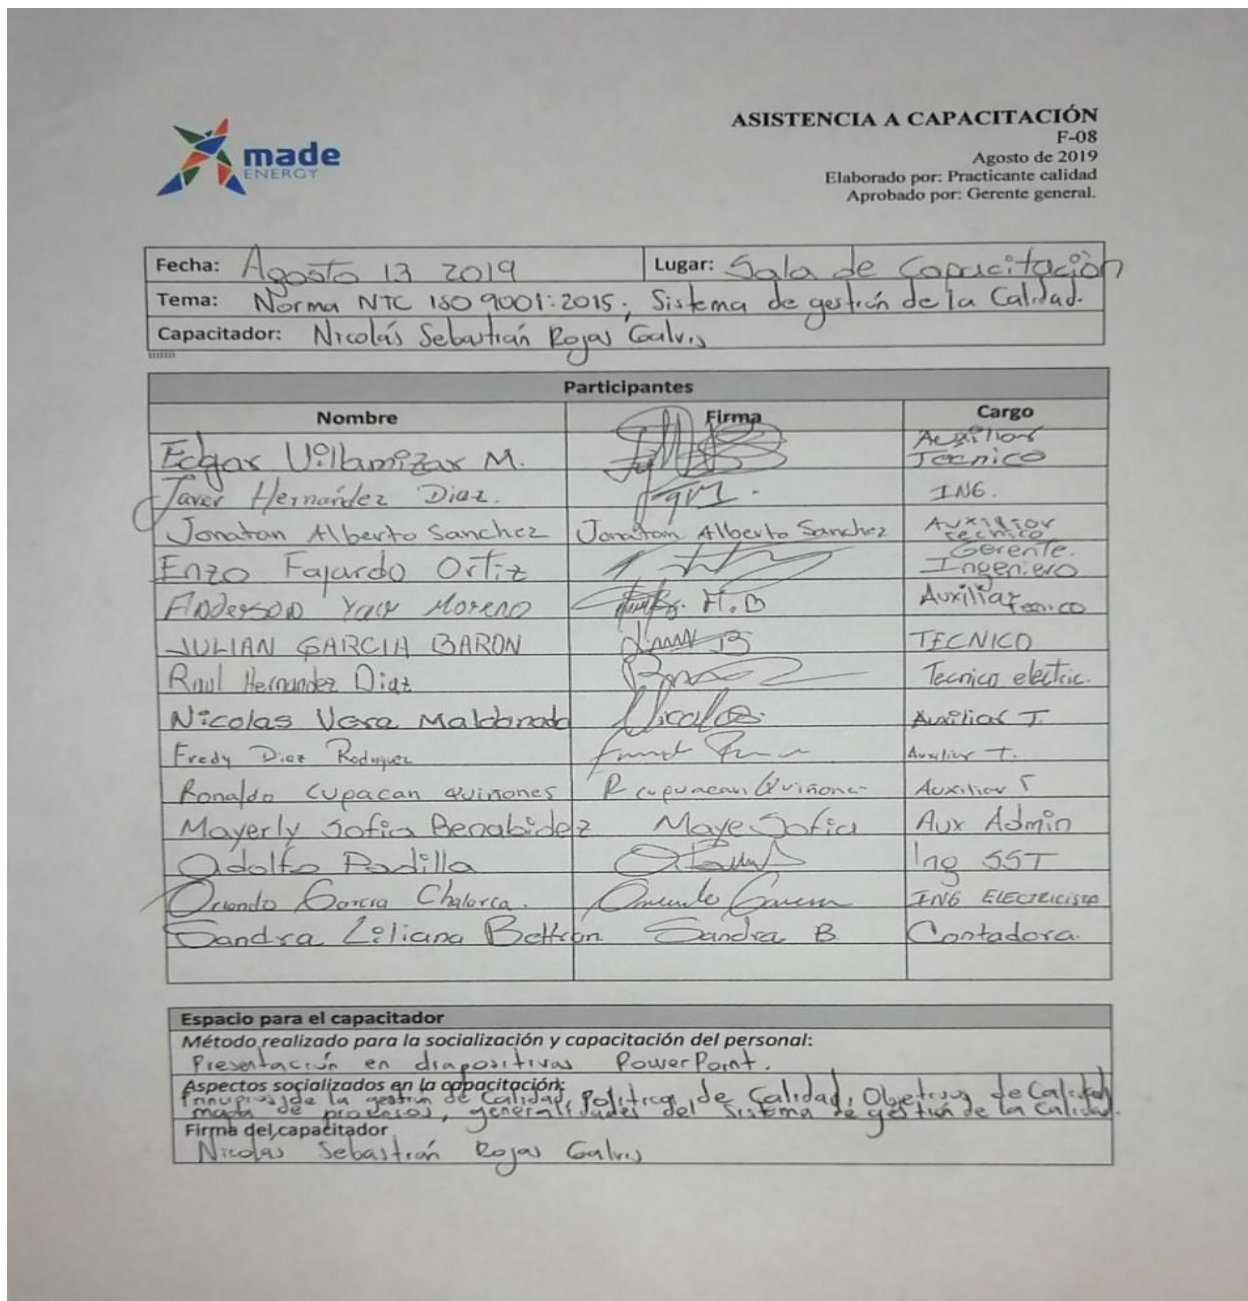 made
ENERGY
ASISTENCIA A CAPACITACIÓN
F-08
Agosto de 2019
Elaborado por: Practicante calidad
Aprobado por: Gerente general.
Fecha: Agosto 13 2019 Lugar: Sala de Capacitación
Tema: Norma NTC ISO 9001:2015; Sistema de gestión de la Calidad.
Capacitador: Nicolás Sebastián Rojas Galvis
Participantes
Nombre Firma Cargo
Edgar Villamizar M. Auxiliar Tecnico
Javer Hernández Diaz. ING.
Jonatan Alberto Sanchez Jonatan Alberto Sanchez Auxilior tecnico
Enzo Fajardo Ortiz Gerente. Ingeniero
Anderson Yair Moreno M.B Auxiliar Tecnico
JULIAN GARCIA BARON TECNICO
Raul Hernandez Diaz Tecnico electric.
Nicolas Vera Maldonado Nicolas Auxiliar T.
Fredy Diaz Rodriguez Auxiliar T.
Ronaldo Cupacan Quiñones R cupacan Quiñones Auxiliar T
Mayerly Sofia Benabidez Maye Sofia Aux Admin
Adolfo Padilla Ing SST
Orlando Garcia Chalarca. Orlando Garcia ING ELECTRICISTA
Sandra Liliana Beltran Sandra B Contadora.
Espacio para el capacitador
Método realizado para la socialización y capacitación del personal:
Presentación en diapositivas PowerPoint.
Aspectos socializados en la capacitación:
Principios de la gestión de Calidad, Política de Calidad, Objetivos de Calidad
mapa de procesos, generalidades del Sistema de gestión de la Calidad.
Firma del capacitador
Nicolas Sebastián Rojas Galvis